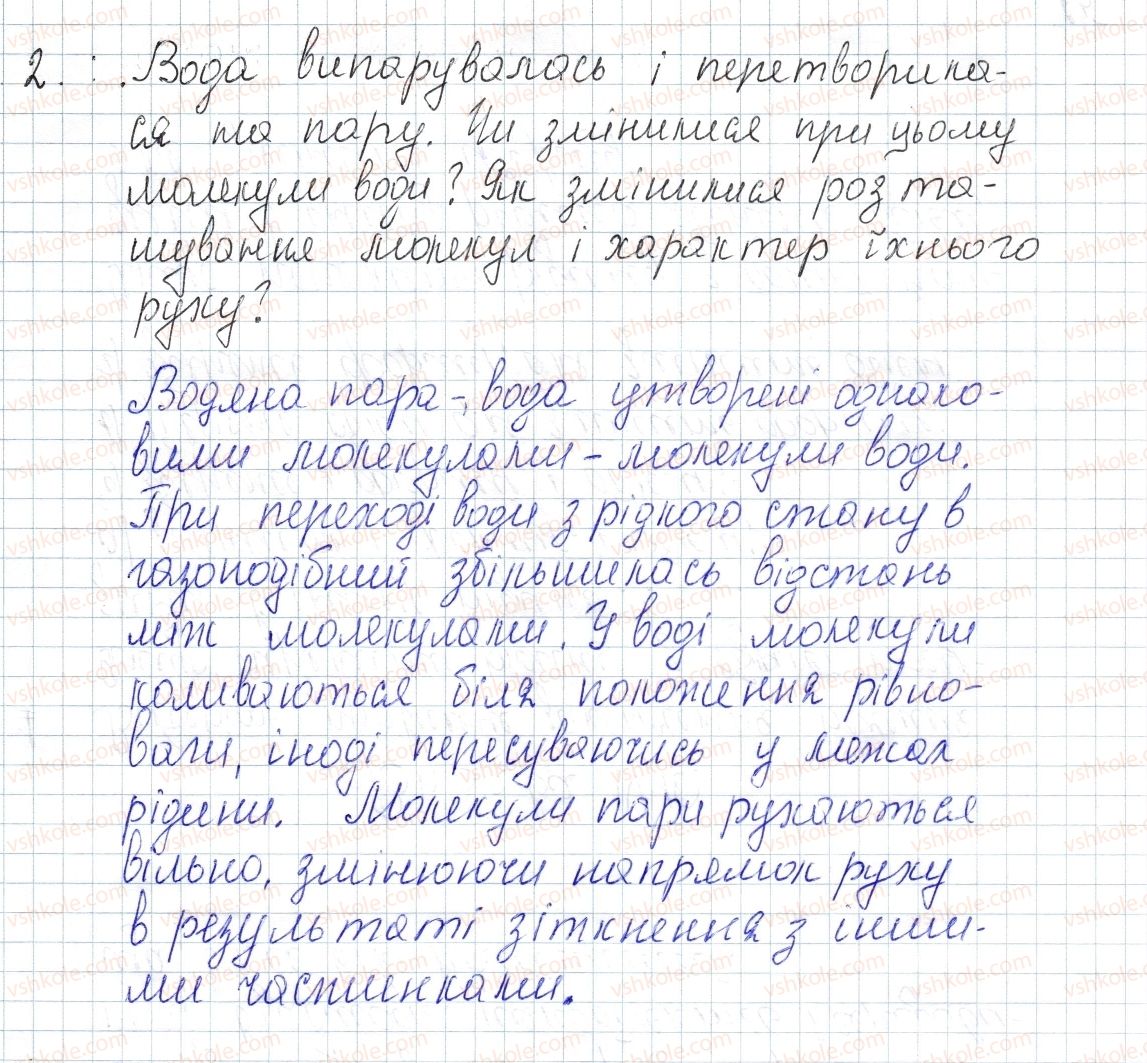 2. Вода випарувалась і перетворила-
ся на пару. Чи змінилися при цьому
молекули води? Як змінилися розта-
шування молекул і характер їхнього
руху?
Водяна пара -, вода утворені однако-
вими молекулами - молекули води.
При переході води з рідкого стану в
газоподібний збільшилась відстань
між молекулами. У воді молекули
коливаються біля положення рівно-
ваги, іноді пересуваючись у межах
рідини. Молекули пари рухаються
вільно, змінюючи напрямок руху
в результаті зіткнення з інши-
ми частинками.